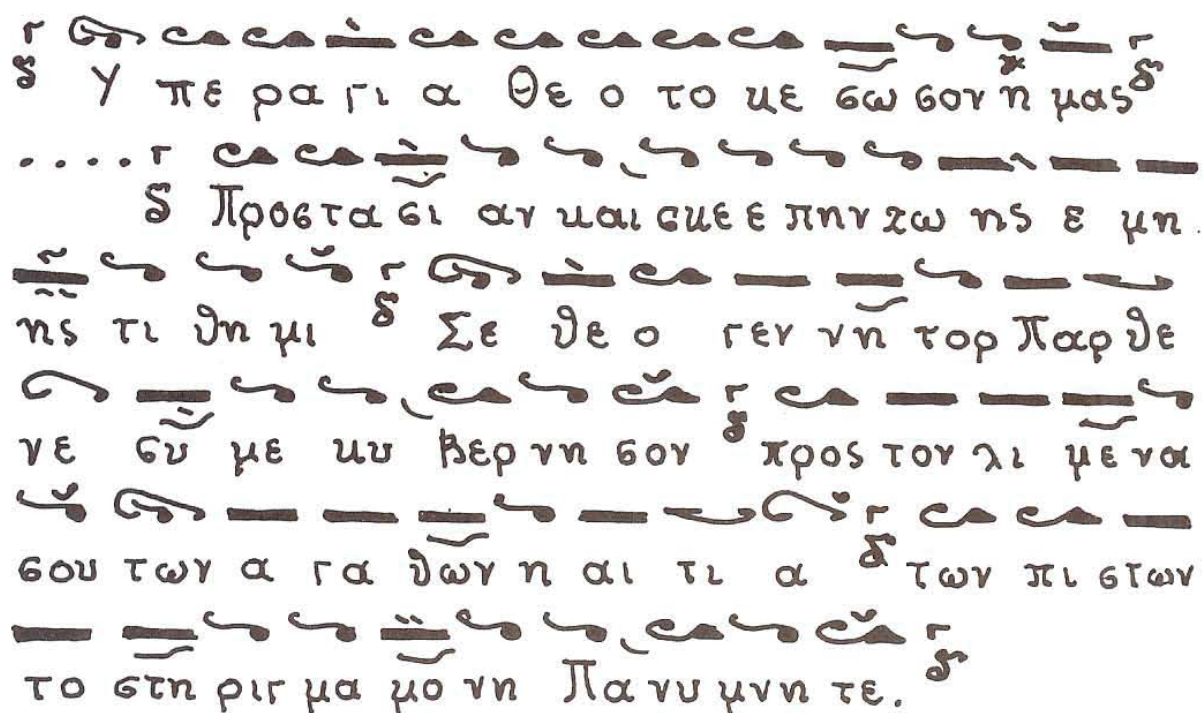 Υ πε ρα γι α Θε ο το κε σω σον η μας
Προστα σι αν και σκε ε πην ζω ης ε μη
ης τι θη μι Σε θε ο γεν νη τορ Παρ θε
νε συ με κυ βερ νη σον προς τον λι με να
σου των α γα θων η αι τι α των πι στων
το στη ριγ μα μο νη Πα νυ μνη τε.